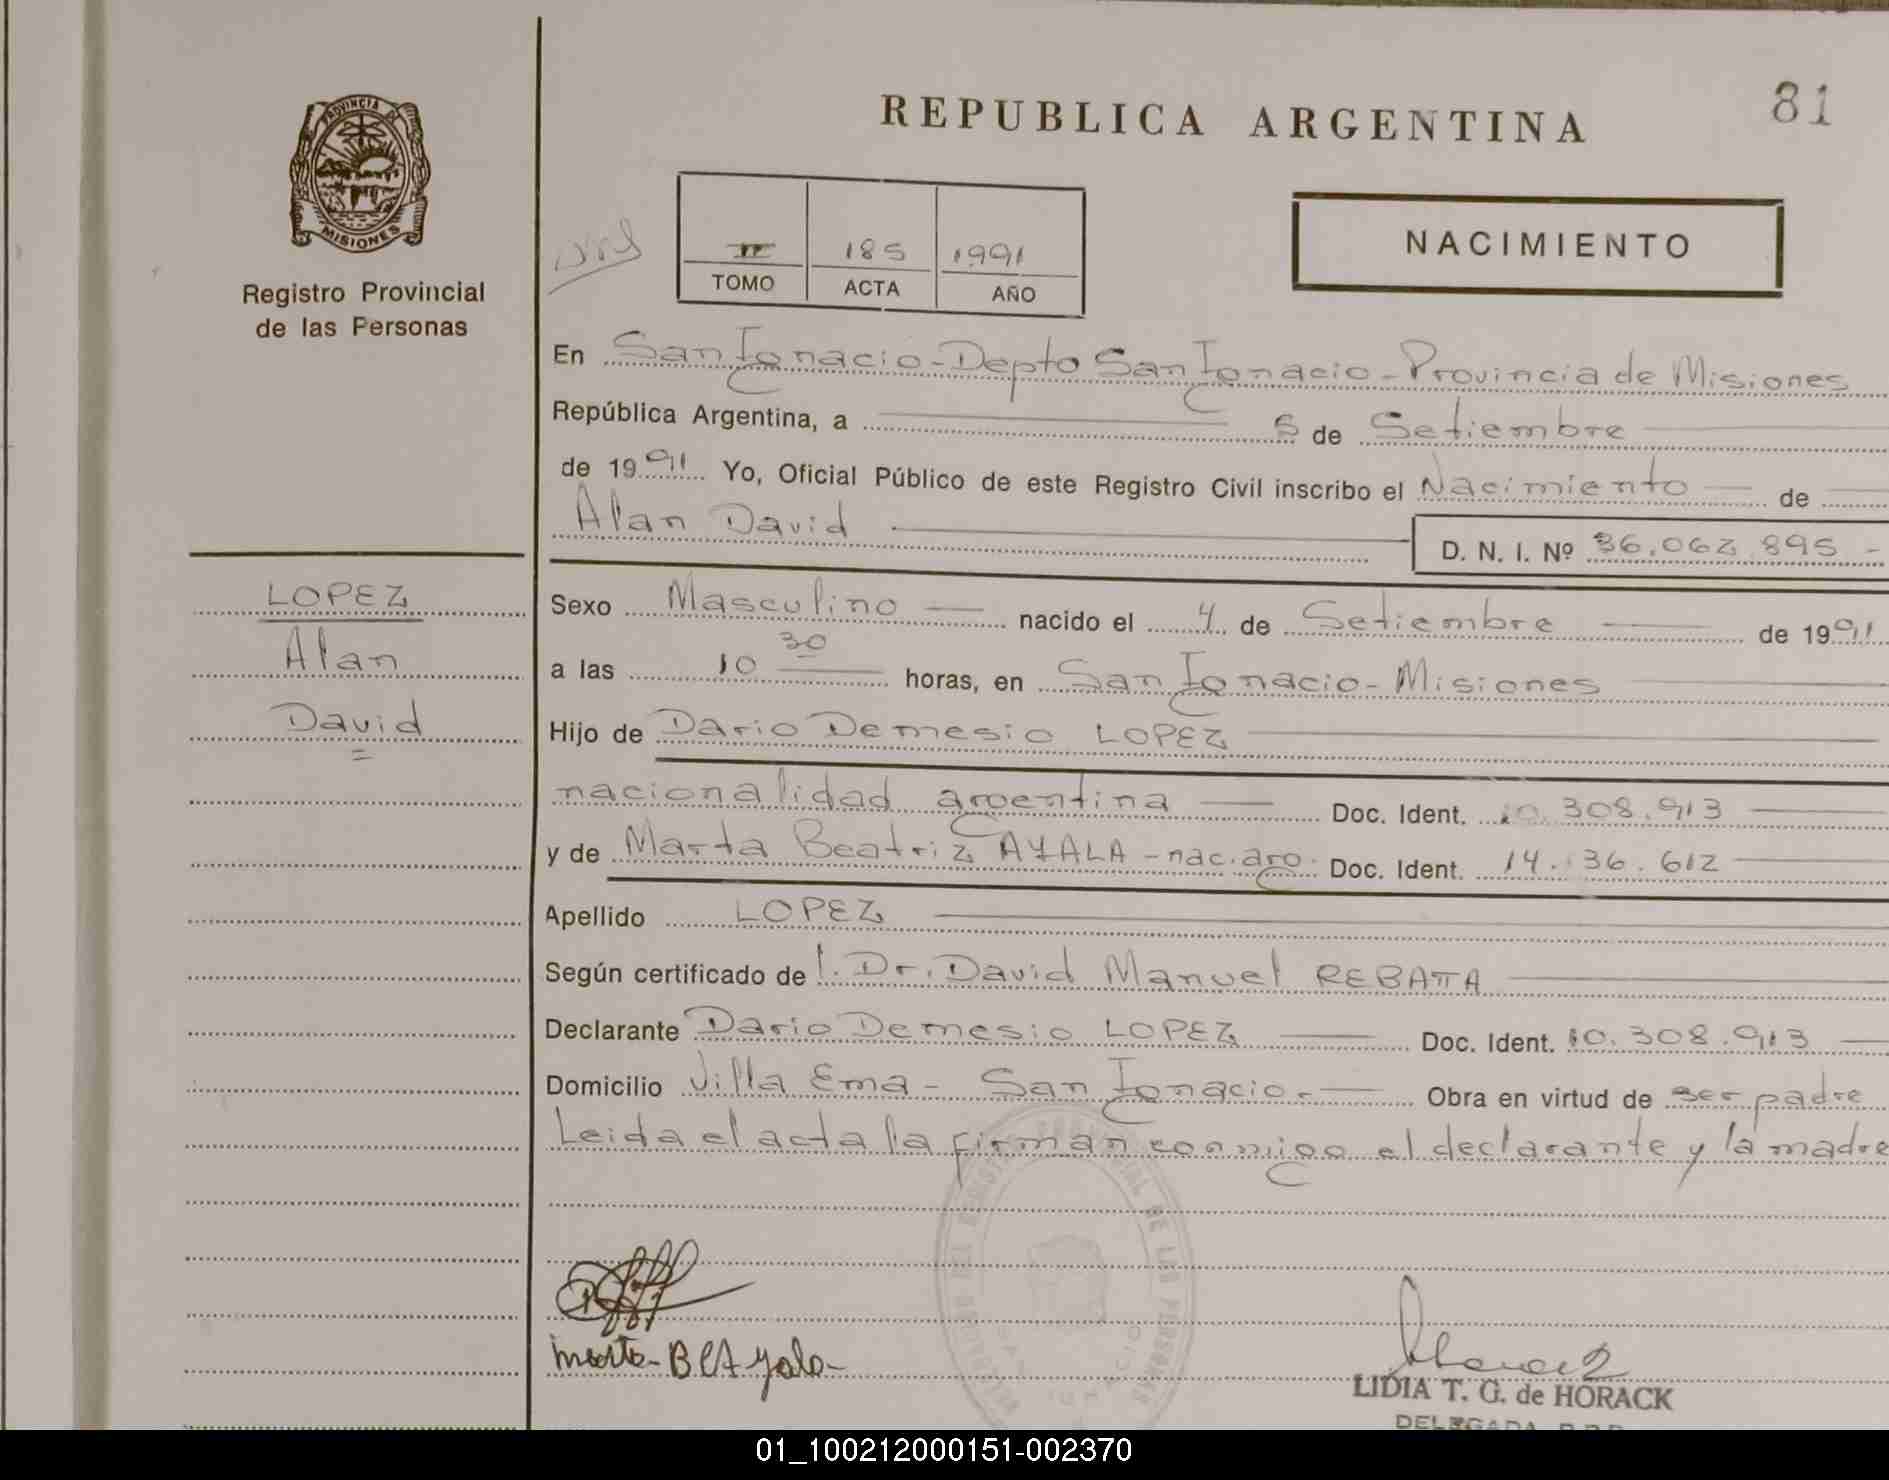 REPUBLICA ARGENTINA
81
PROVINCIA DE
MISIONES
Registro Provincial
de las Personas
II 185 1991
TOMO ACTA AÑO
NACIMIENTO
En San Ignacio - Depto San Ignacio - Provincia de Misiones
República Argentina, a 5 de Setiembre
de 1991 Yo, Oficial Público de este Registro Civil inscribo el Nacimiento de
Alan David
D. N. I. Nº 36.062.895 -
LOPEZ
Alan
David
Sexo Masculino nacido el 4 de Setiembre de 1991
a las 10 30 horas, en San Ignacio - Misiones
Hijo de Dario Demesio LOPEZ
nacionalidad argentina Doc. Ident. 10.308.913
y de Marta Beatriz AYALA - nac. arg. Doc. Ident. 14. 36.612
Apellido LOPEZ
Según certificado de Dr. David Manuel REBATTA
Declarante Dario Demesio LOPEZ Doc. Ident. 10.308.913
Domicilio Villa Ema - San Ignacio. - Obra en virtud de ser padre
Leida el acta la firman conmigo el declarante y la madre
Marta - B Ayala -
LIDIA T. G. de HORACK
DELEGADA R.P.P.
01_100212000151-002370